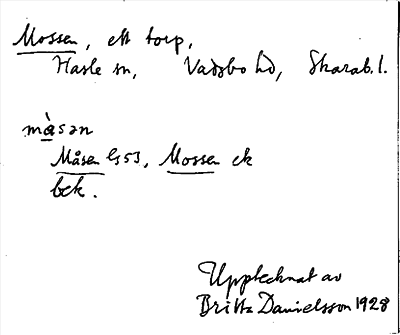 Mossen, ett torp,
Hasle sn, Vadsbo hd, Skarab. l.
må̀sən
Måsen GS3, Mossen ek
bek.
Upptecknat av
Britta Danielsson 1928